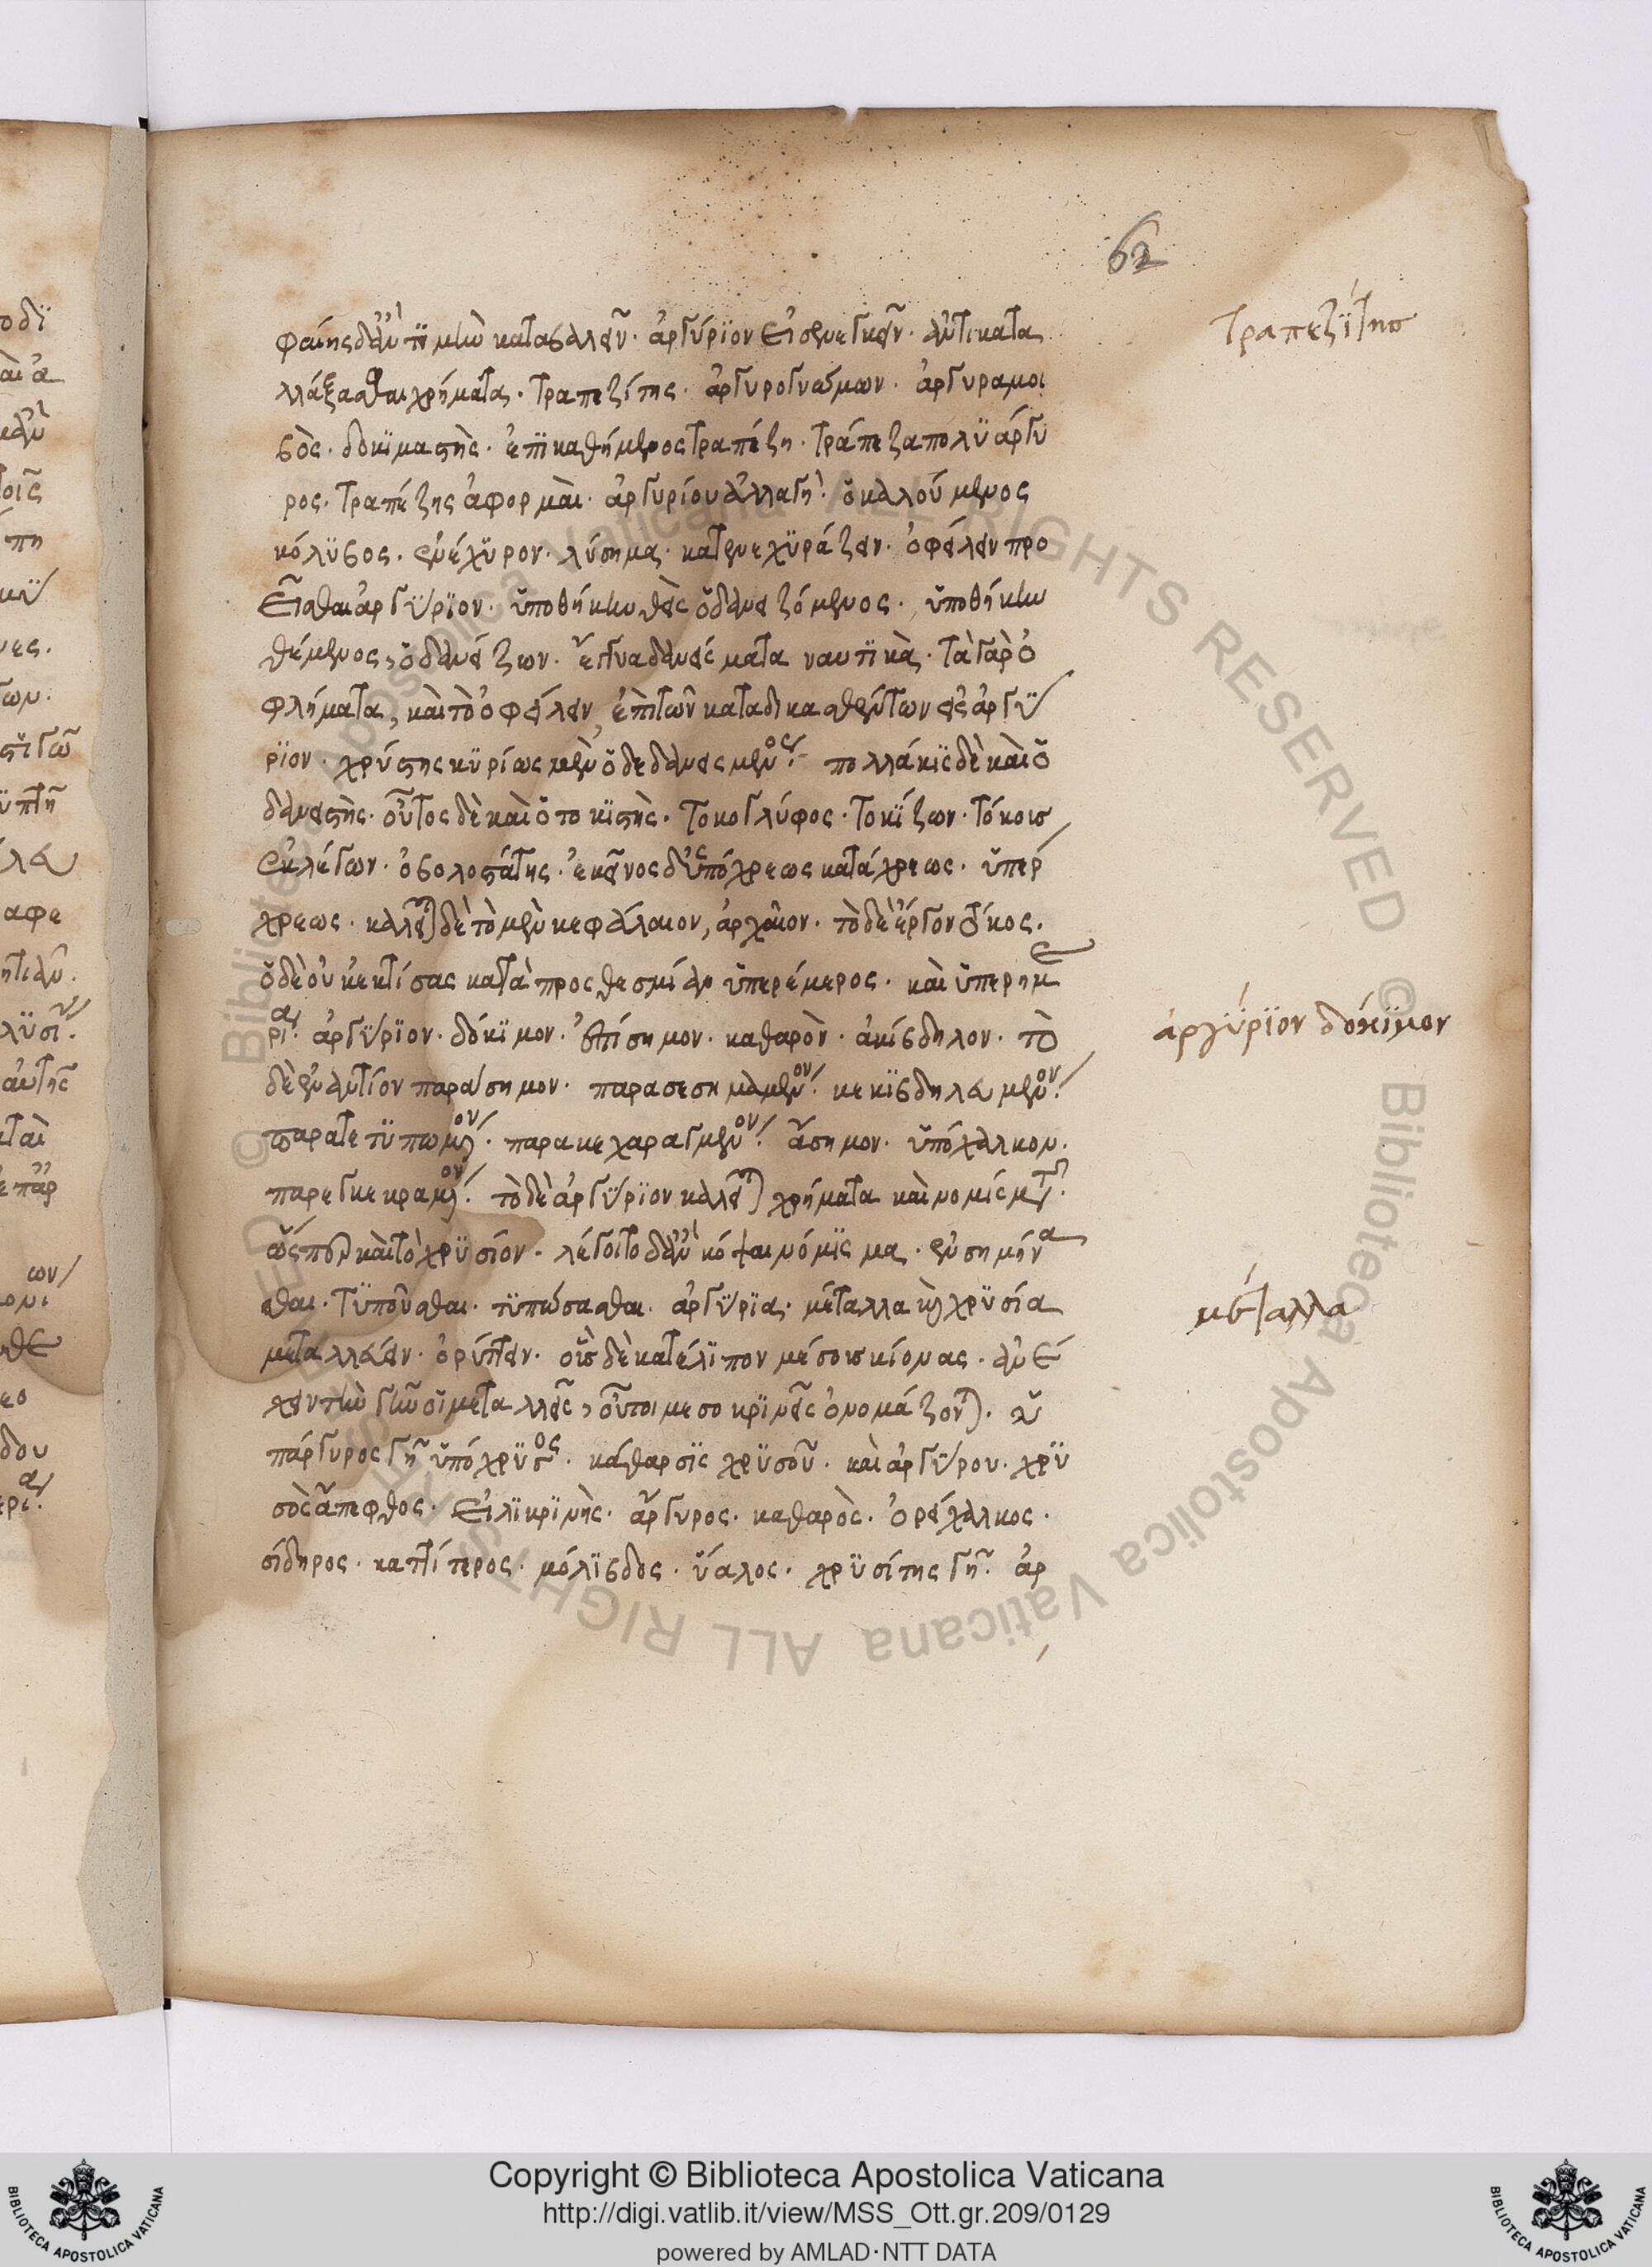 62
φαίης δ' ἂν τιμὴν καταβαλεῖν· ἀργύριον εἰσενεγκεῖν· ἀντικατα
τραπεζίτης
λλάξασθαι χρήματα· τραπεζίτης· ἀργυρογνώμων· ἀργυραμοι
βὸς· δοκιμαστὴς· ἐπικαθήμενος τραπέζη· τράπεζα πολυάργυ
ρος· τραπέζης ἀφορμαὶ· ἀργυρίου ἀλλαγὴ· ὁ καλούμενος
κόλυβος· ἐνέχυρον· λύσημα· κατενεχυράζειν· ὀφείλειν προ
εῖσθαι ἀργύριον· ὑποθήκην θεὶς ὁ δανειζόμενος· ὑποθήκην
θέμενος, ὁ δανείζων· ἔγγυα δανείσματα ναυτικὰ· τὰ γὰρ ὀ
φλήματα, καὶ τὸ ὀφείλειν, ἐπὶ τῶν καταδικασθέντων εἰς ἀργύ
ριον· χρήστης κυρίως μὲν ὁ δεδανεισμένος· πολλάκις δὲ καὶ ὁ
δανειστὴς· οὗτος δὲ καὶ ὁ τοκιστὴς· τοκογλύφος· τοκίζων· τόκους
ἐκλέγων· ὀβολοστάτης· ἐκεῖνος δ' ὑπόχρεως κατάχρεως· ὑπέρ
χρεως· καλεῖται δὲ τὸ μὲν κεφάλαιον, ἀρχαῖον· τὸ δὲ ἔργον τόκος·
ὁ δὲ οὐκ ἐκτίσας κατὰ προσθεσμίαν ὑπερέμερος· καὶ ὑπερημε
ρία· ἀργύριον· δόκιμον· ἐπίσημον· καθαρὸν· ἀκίβδηλον· τὸ
ἀργύριον δόκιμον
δὲ ἐναντίον παράσημον· παρασεσημαμένον· κεκιβδηλωμένον·
παρατετυπωμένον· παρακεχαραγμένον· ἄσημον· ὑπόχαλκον·
παρεγκεκραμένον· τὸ δὲ ἀργύριον καλεῖται χρήματα καὶ νομίσματα·
ὥσπερ καὶ τὸ χρυσίον· λέγοιτο δ' ἂν κόψαι νόμισμα· ἐνσημήνα
σθαι· τυποῦσθαι· τυπώσασθαι· ἀργύρια· μέταλλα καὶ χρυσία
μέταλλα
μεταλλεύειν· ὀρύττειν· οἷς δὲ κατέλιπον μέσοις κίονας· ἀνέ
χειν τὴν γῆν οἱ μεταλλεῖς, οὗτοι μεσοκρινεῖς ὀνομάζονται· ὑ
πάργυρος γῆ ὑπόχρυσος· κάθαρσις χρυσοῦ· καὶ ἀργύρου· χρυ
σὸς ἄπεφθος· εἰλικρινὴς· ἄργυρος· καθαρὸς· ὀρείχαλκος·
σίδηρος· καττίτερος· μόλιβδος· ὕαλος· χρυσίτης γῆ· ἀρ
Copyright © Biblioteca Apostolica Vaticana
http://digi.vatlib.it/view/MSS_Ott.gr.209/0129
powered by AMLAD·NTT DATA
© Biblioteca Apostolica Vaticana ALL RIGHTS RESERVED
© Biblioteca Apostolica Vaticana ALL RIGHTS RESERVED
BIBLIOTECA APOSTOLICA VATICANA
BIBLIOTECA APOSTOLICA VATICANA